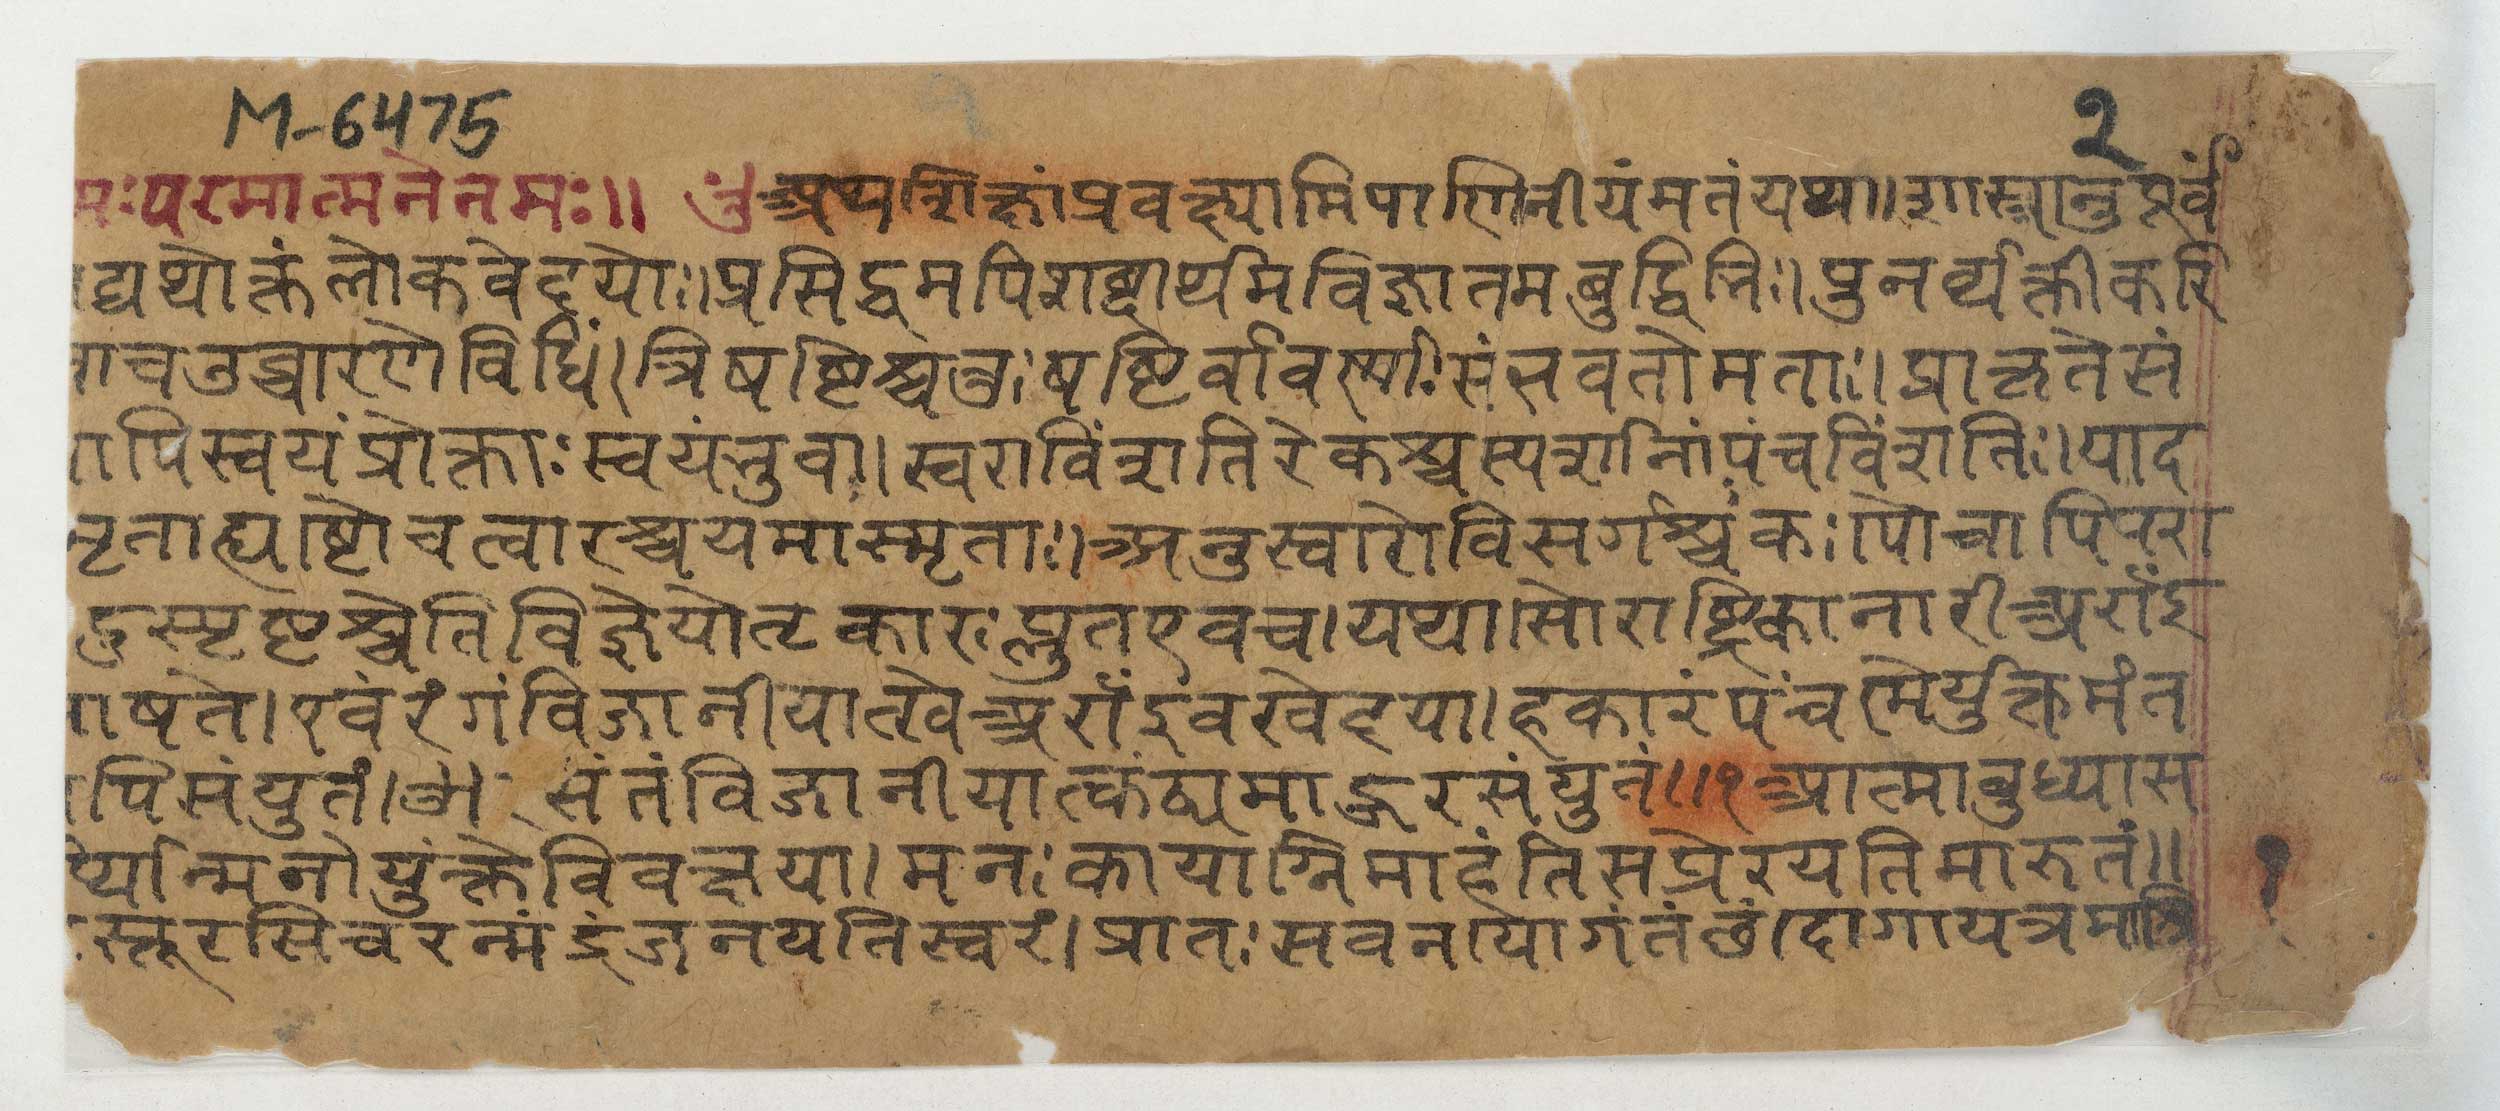 M-6475
२
मः परमात्मने नमः॥ अथ शिक्षां प्रवक्ष्यामि पाणिनीयं मतं यथा॥ शास्त्रानुपूर्वं
द्यथोक्तं लोकवेदयोः॥ प्रसिद्धमपि शब्दार्थमविज्ञातमबुद्धिभिः॥ पुनर्व्यक्तीकरि
वाच उच्चारणे विधिं। त्रिषष्टिश्चतुःषष्टिर्वा वर्णाः संभवतो मताः॥ प्राकृते सं
पि स्वयं प्रोक्ताः स्वयंभुवा। स्वरा विंशतिरेकश्च स्पर्शानां पंचविंशतिः॥ याद
स्मृता ह्यष्टौ चत्वारश्च यमा स्मृताः॥ अनुस्वारो विसर्गश्च कःपौ चापि परा
दुस्पृष्टश्चेति विज्ञेयो ऌकारः प्लुत एव च। यथा सौराष्ट्रिका नारी अराँ इ
भाषते। एवं रंगं विजानीयात्खे अराँ इव खेदया। हकारं पंचमैर्युक्तमंत
पि संयुतं। सं तं विजानीयात्कंठ्यमाहुरसंयुतं॥१ आत्मा बुध्या स
र्थ्यान्मनो युंक्ते विवक्षया। मनः कायाग्निमाहंति स प्रेरयति मारुतं॥
स्तूरसि चरन्मंद्रं जनयति स्वरं। प्रातःसवनयोगं तं छंदोगायत्रमाश्रि